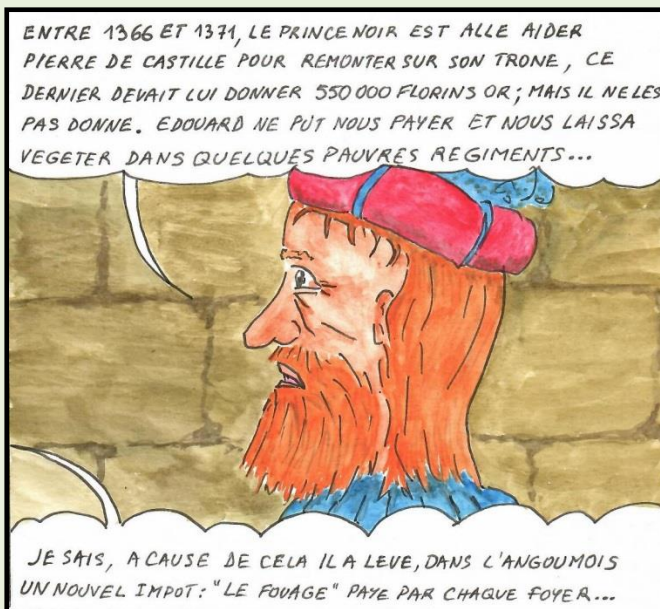 ENTRE 1366 ET 1371, LE PRINCE NOIR EST ALLE AIDER
PIERRE DE CASTILLE POUR REMONTER SUR SON TRONE, CE
DERNIER DEVAIT LUI DONNER 550 000 FLORINS OR; MAIS IL NE LES
PAS DONNE. EDOUARD NE PUT NOUS PAYER ET NOUS LAISSA
VEGETER DANS QUELQUES PAUVRES REGIMENTS...
JE SAIS, A CAUSE DE CELA IL A LEVE, DANS L'ANGOUMOIS
UN NOUVEL IMPOT: "LE FOUAGE" PAYE PAR CHAQUE FOYER...